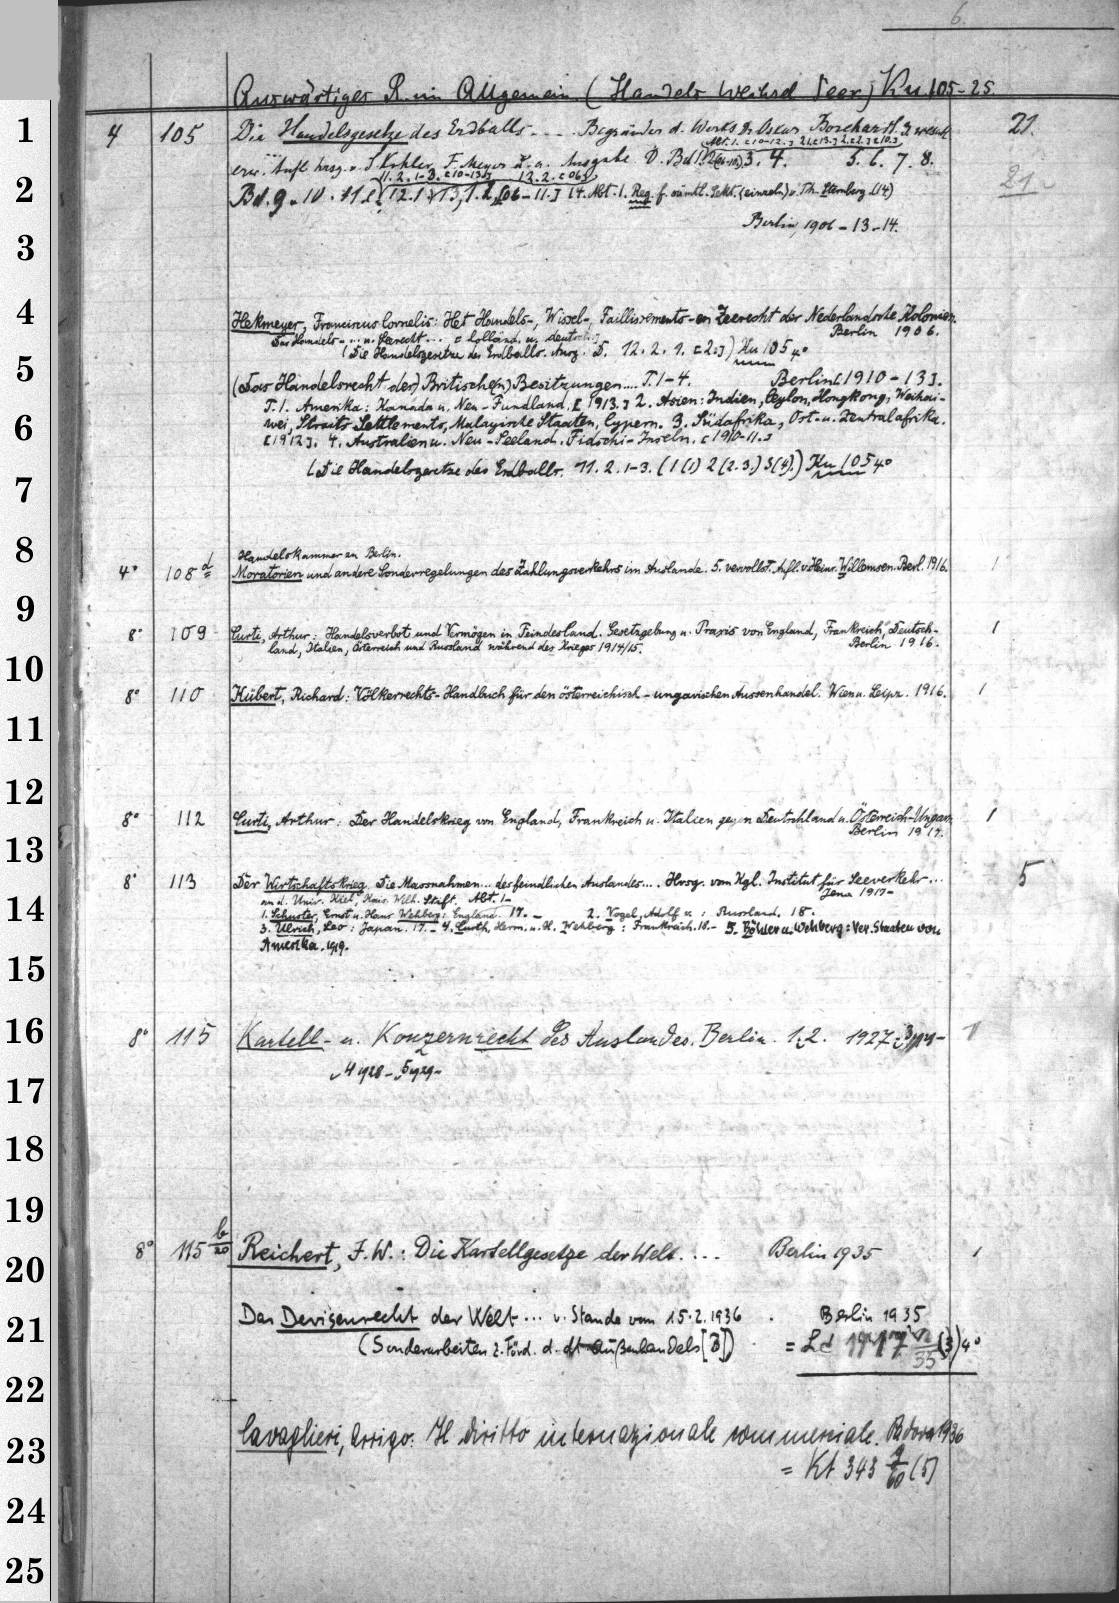 6.
Auswärtiges R. im Allgemein (Handels Wechsel Seer) Ku 105-25.
4 105 Die Handelsgesetze des Erdballs.... Begründer d. Werks Dr. Oskar Borchardt. 21.
Abt. 1. [10-12.]
erw. Aufl. hrsg. v. J. Kohler, F. Meyer u. a. Ausgabe D. Bd 1. 3. 4. 5. 6. 7. 8.
11. 2. 1-3. [10-13] 12.2. [06] 21
Bd. 9. 10. 11 [06-11.] Reg. f. sämtl. (einzeln) v. Th. Sternberg (14)
Berlin, 1906-13-14.
Hekmeyer, Franciscus Cornelis: Het Handels-, Wissel-, Faillissements- en Zeerecht der Nederlandsche Kolonien.
Das Handels- ... u. Seerecht ... [holländ. u. deutsch.] Berlin 1906.
(Die Handelsgesetze des Erdballs. Ausg. D. 12. 2. 1. [2.]) Ku 105 4°
(Das Handelsrecht der) Britische(n) Besitzungen.... T. 1-4. Berlin [1910-13].
T. 1. Amerika: Kanada u. Neu-Fundland. [1913.] 2. Asien: Indien, Ceylon, Hongkong, Weihai-
wei, Straits Settlements, Malayische Staaten, Cypern. 3. Südafrika, Ost- u. Zentralafrika.
[1912]. 4. Australien u. Neu-Seeland. Fidschi-Inseln. [1910-11.]
(Die Handelsgesetze des Erdballs. 11. 2. 1-3. (1(1) 2(2.3.) 3(4).) Ku 105 4°
Handelskammer zu Berlin.
4° 108 d Moratorien und andere Sonderregelungen des Zahlungsverkehrs im Auslande. 5. vervollst. Aufl. v. Heinr. Willemsen. Berl. 1916. 1
8° 109 Curti, Arthur: Handelsverbot und Vermögen in Feindesland. Gesetzgebung u. Praxis von England, Frankreich, Deutsch- 1
land, Italien, Österreich und Russland während des Krieges 1914/15. Berlin 1916.
8° 110 Kübert, Richard: Völkerrechts-Handbuch für den österreichisch-ungarischen Aussenhandel. Wien u. Leipz. 1916. 1
8° 112 Curti, Arthur: Der Handelskrieg von England, Frankreich u. Italien gegen Deutschland u. Österreich-Ungarn 1
Berlin 1917.
8° 113 Der Wirtschaftskrieg. Die Massnahmen... des feindlichen Auslandes.... Hrsg. vom Kgl. Institut für Seeverkehr... 5
an d. Univ. Kiel, Kais. Wilh. Stift. Abt. 1- Jena 1917-
1. Schuster, Ernst u. Hans Wehberg: England. 17. - 2. Vogel, Adolf u. : Russland. 18.
3. Ulrich, Leo: Japan. 17. - 4. Curth, Herm. u. H. Wehberg: Frankreich. 18. - 5. u. Wehberg: Ver. Staaten von
Amerika. 1919.
8° 115 Kartell- u. Konzernrecht des Auslandes. Berlin. 1. 2. 1927
4 1928 - 5 1929-
8° 115 b/20 Reichert, J. W.: Die Kartellgesetze der Welt. ... Berlin 1935 1
Das Devisenrecht der Welt ... v. Stande vom 15.2.1936 Berlin 1935
(Sonderarbeiten z. Förd. d. dt Außenhandels [3]) = Ld 1917 n/35 (3) 4°
Cavaglieri, Arrigo: Il diritto internazionale commerciale. Padova 1936
= Kt 343 g/60 (5)
1
2
3
4
5
6
7
8
9
10
11
12
13
14
15
16
17
18
19
20
21
22
23
24
25